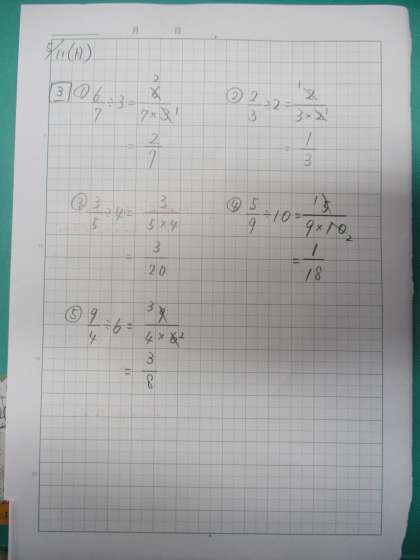 月 日
5/11(A)
3 ① 6/7 ÷ 3 = 6/7×3 2 1
= 2/7
② 2/3 ÷ 2 = 2/3×2 1 1
= 1/3
③ 3/5 ÷ 4 = 3/5×4
= 3/20
④ 5/9 ÷ 10 = 5/9×10 1 2
= 1/18
⑤ 9/4 ÷ 6 = 9/4×6 3 2
= 3/8